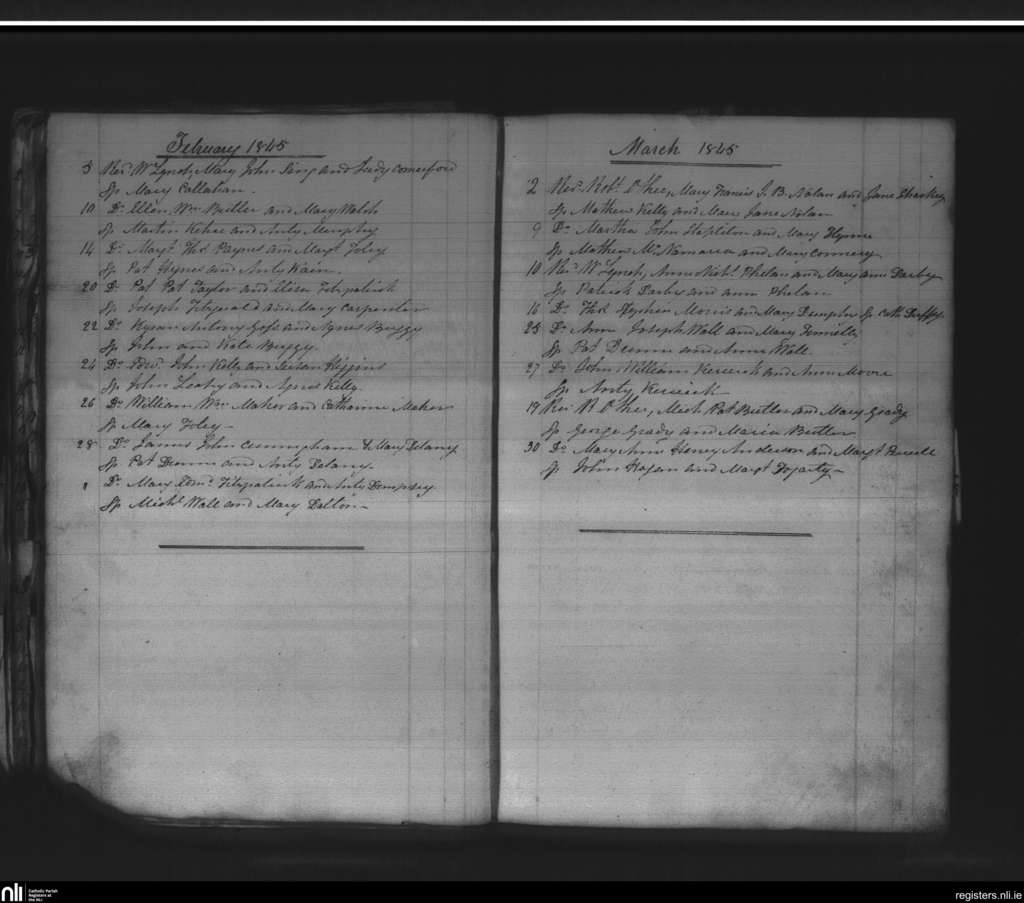 February 1845
5 Revd Wm Lynch, Mary John King and Judy Comerford
Sp Mary Callahan.
10 Do Ellen Wm Butler and Mary Walsh
Sp Martin Kehoe and Anty Murphy
14 Do Margt Thos Paynes and Margt Foley
Sp Pat Hynes and Anty Kain.
20 Do Pat Pat Taylor and Eliza Fitzpatrick
Sp Joseph Fitzgerald and Mary Carpenter
22 Do Kyran Antony Goss and Agnes Buggy
Sp John and Kate Buggy.
24 Do Edwd John Kelly and Higgins
Sp John Leahy and Agnes Kelly.
26 Do William Wm Maher and Catharine Maher
Sp Mary Foley -
28 Do James John Cunningham & Mary Delany
Sp Pat Drennan and Anty Delany.
" Do Mary Edmd Fitzpatrick and Anty Dempsey
Sp Michl Wall and Mary Dalton -
March 1845
2 Revd Robt O'Shea, Mary Francis J. B. Nolan and Jane Sharkey
Sp Mathew Kelly and Mary Jane Nolan
9 Do Martha John Stapleton and Mary Flynne
Sp Mathew McNamara and Mary Connery
10 Revd Wm Lynch, Anne Richd Phelan and Mary Anne Darby
Sp Patrick Darby and Ann Phelan
16 Do Thos Stephen Morris and Mary Dunphy Sp Cath Duffy
25 Do Anne Joseph Wall and Mary Fennelly
Sp Pat and Anne Wall.
27 Do John William Kerwick and Ann Moore
Sp Anty Kerwick
19 Revd R O'Shea, Mich Pat Butler and Mary Grady
Sp George Grady and Maria Butler
30 Do Mary Anne Henry Anderson and Margt Purcell
Sp John Hogan and Margt Fogarty -
nli
Catholic Parish
Registers at
the NLI
registers.nli.ie